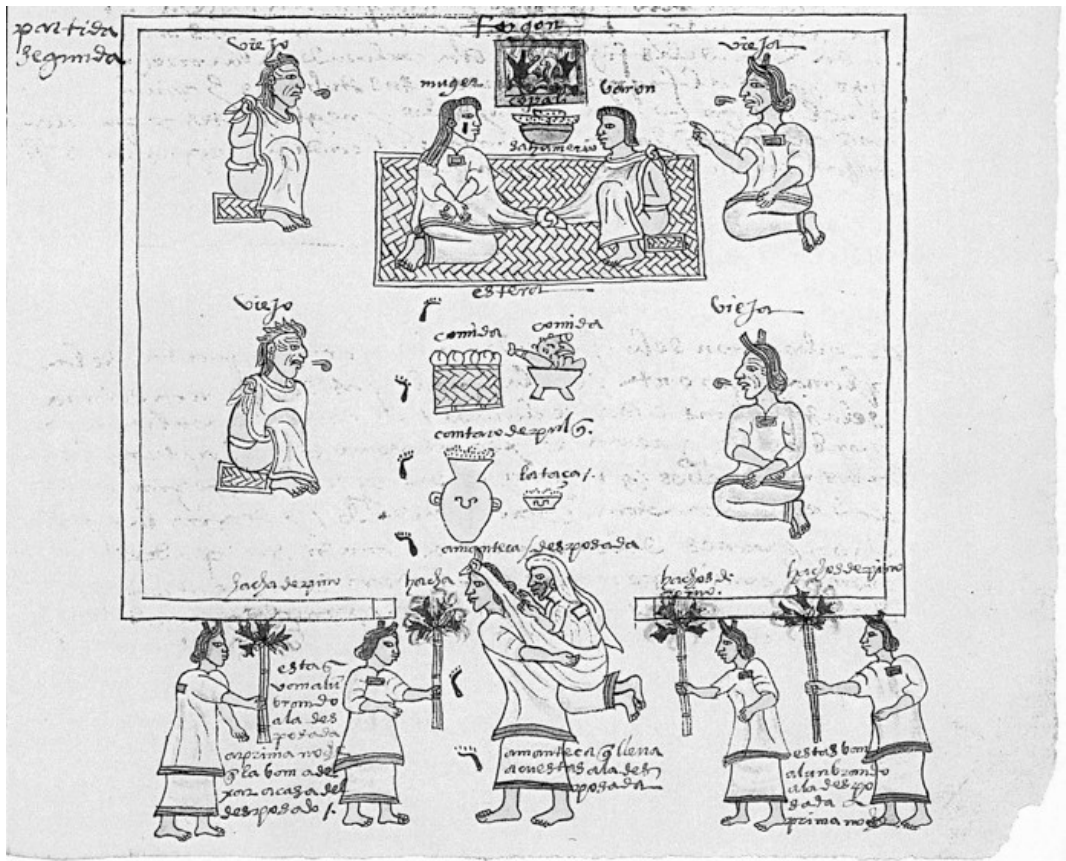 partida
segunda
fogon
viejo
vieja
muger
copal
varon
sahumerio
estera
viejo
vieja
comida
comida
la taça /.
amanteca / desposada
hacha de pino
hacha
hachos de
pino.
hachos de pino
estas
van alũ
brando
ala des
posada
a prima no
q̃ la van a de
xar a casa del
desposado /.
amanteca q̃ lleva
a cuestas ala des
posada
estas van
alunbrando
ala despo
sada a
prima no